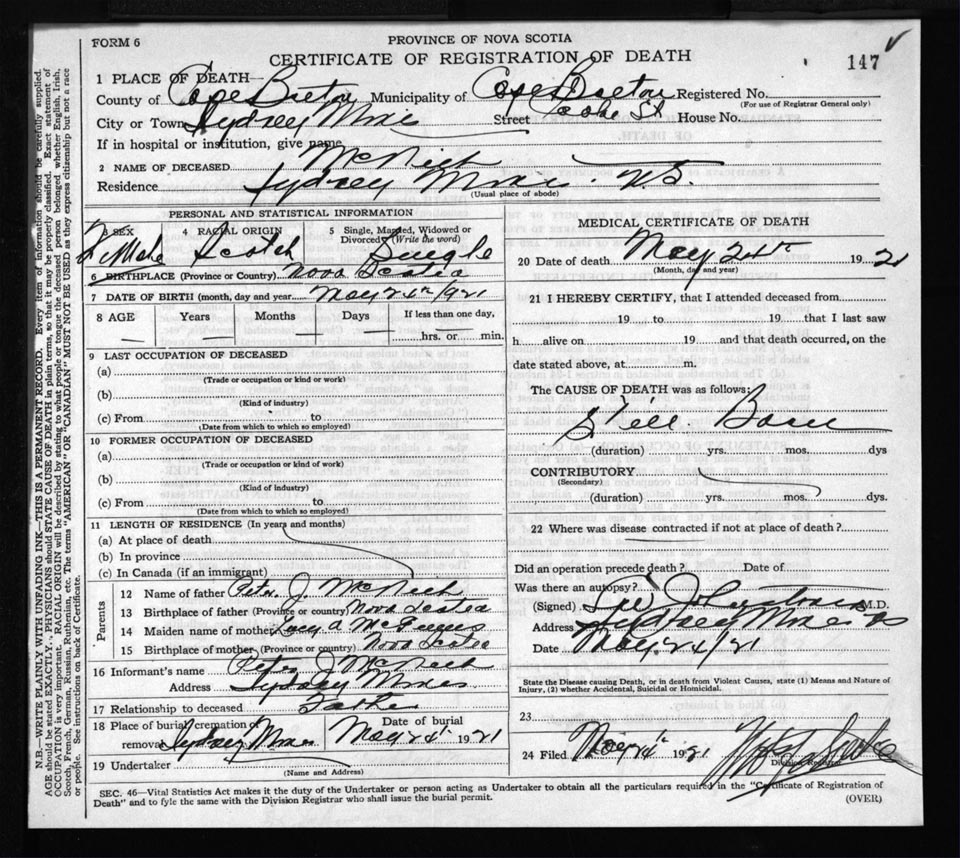 FORM 6
PROVINCE OF NOVA SCOTIA
CERTIFICATE OF REGISTRATION OF DEATH
147
1 PLACE OF DEATH—
County of Cape Breton Municipality of Cape Breton Registered No.
(For use of Registrar General only)
City or Town Sydney Mines Street House No.
If in hospital or institution, give name
2 NAME OF DECEASED McNeil
Residence Sydney Mines. N.S.
(Usual place of abode)
PERSONAL AND STATISTICAL INFORMATION
3 SEX 4 RACIAL ORIGIN 5 Single, Married, Widowed or Divorced (Write the word)
Female Scotch Single
6 BIRTHPLACE (Province or Country) Nova Scotia
7 DATE OF BIRTH (month, day and year) May 24th 1921
8 AGE Years Months Days If less than one day,
hrs. or min.
9 LAST OCCUPATION OF DECEASED
(a)
(Trade or occupation or kind or work)
(b)
(Kind of industry)
(c) From to
(Date from which to which so employed)
10 FORMER OCCUPATION OF DECEASED
(a)
(Trade or occupation or kind of work)
(b)
(Kind of industry)
(c) From to
(Date from which to which so employed)
11 LENGTH OF RESIDENCE (In years and months)
(a) At place of death
(b) In province
(c) In Canada (if an immigrant)
Parents
12 Name of father Peter J. McNeil
13 Birthplace of father (Province or country) Nova Scotia
14 Maiden name of mother A
15 Birthplace of mother (Province or country) Nova Scotia
16 Informant's name Peter J McNeil
Address Sydney Mines
17 Relationship to deceased Father
18 Place of burial, cremation or removal Sydney Mines Date of burial May 24th 1921
19 Undertaker
(Name and Address)
MEDICAL CERTIFICATE OF DEATH
20 Date of death May 24th 1921
(Month, day and year)
21 I HEREBY CERTIFY, that I attended deceased from
19 to 19 that I last saw
h alive on 19 and that death occurred, on the
date stated above, at m.
The CAUSE OF DEATH was as follows:
Still Born
(duration) yrs. mos. dys
CONTRIBUTORY
(Secondary)
(duration) yrs. mos. dys.
22 Where was disease contracted if not at place of death?
Did an operation precede death? Date of
Was there an autopsy?
(Signed) M.D.
Address Sydney Mines NS
Date May 24/21
State the Disease causing Death, or in death from Violent Causes, state (1) Means and Nature of
Injury, (2) whether Accidental, Suicidal or Homicidal.
23
24 Filed May 24th 1921
Division Registrar
SEC. 46—Vital Statistics Act makes it the duty of the Undertaker or person acting as Undertaker to obtain all the particulars required in the "Certificate of Registration of
Death" and to fyle the same with the Division Registrar who shall issue the burial permit.
(OVER)
N.B.—WRITE PLAINLY WITH UNFADING INK—THIS IS A PERMANENT RECORD. Every item of information should be carefully supplied.
AGE should be stated EXACTLY. PHYSICIANS should STATE CAUSE OF DEATH in plain terms, so that it may be properly classified. Exact statement of
OCCUPATION is very important. RACIAL ORIGIN will be described by stating to what people or tongue the deceased person belonged whether English, Irish,
Scotch, French, German, Russian, Ruthenian, etc. The terms "AMERICAN" OR "CANADIAN" MUST NOT BE USED as they express citizenship but not a race
or people. See instructions on back of Certificate.